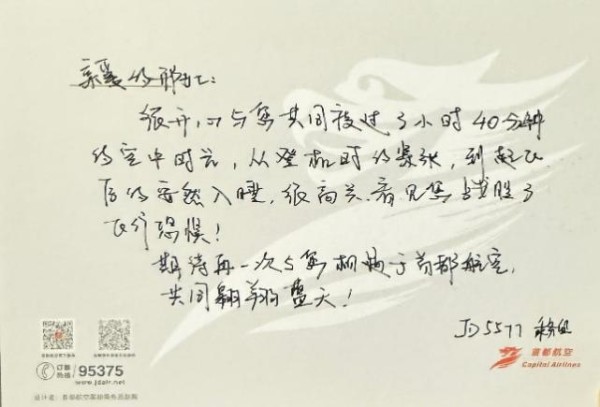 亲爱的
很开心与您共同度过了小时40分钟
的空中时光，从登机时的紧张，到起飞
后的安然入睡，很高兴看见您战胜了
飞行恐惧！
期待再一次与您相聚于首都航空，
共同翱翔蓝天！
JD5577 乘务组
订票
热线
95375
www.jdair.net
首都航空
Capital Airlines